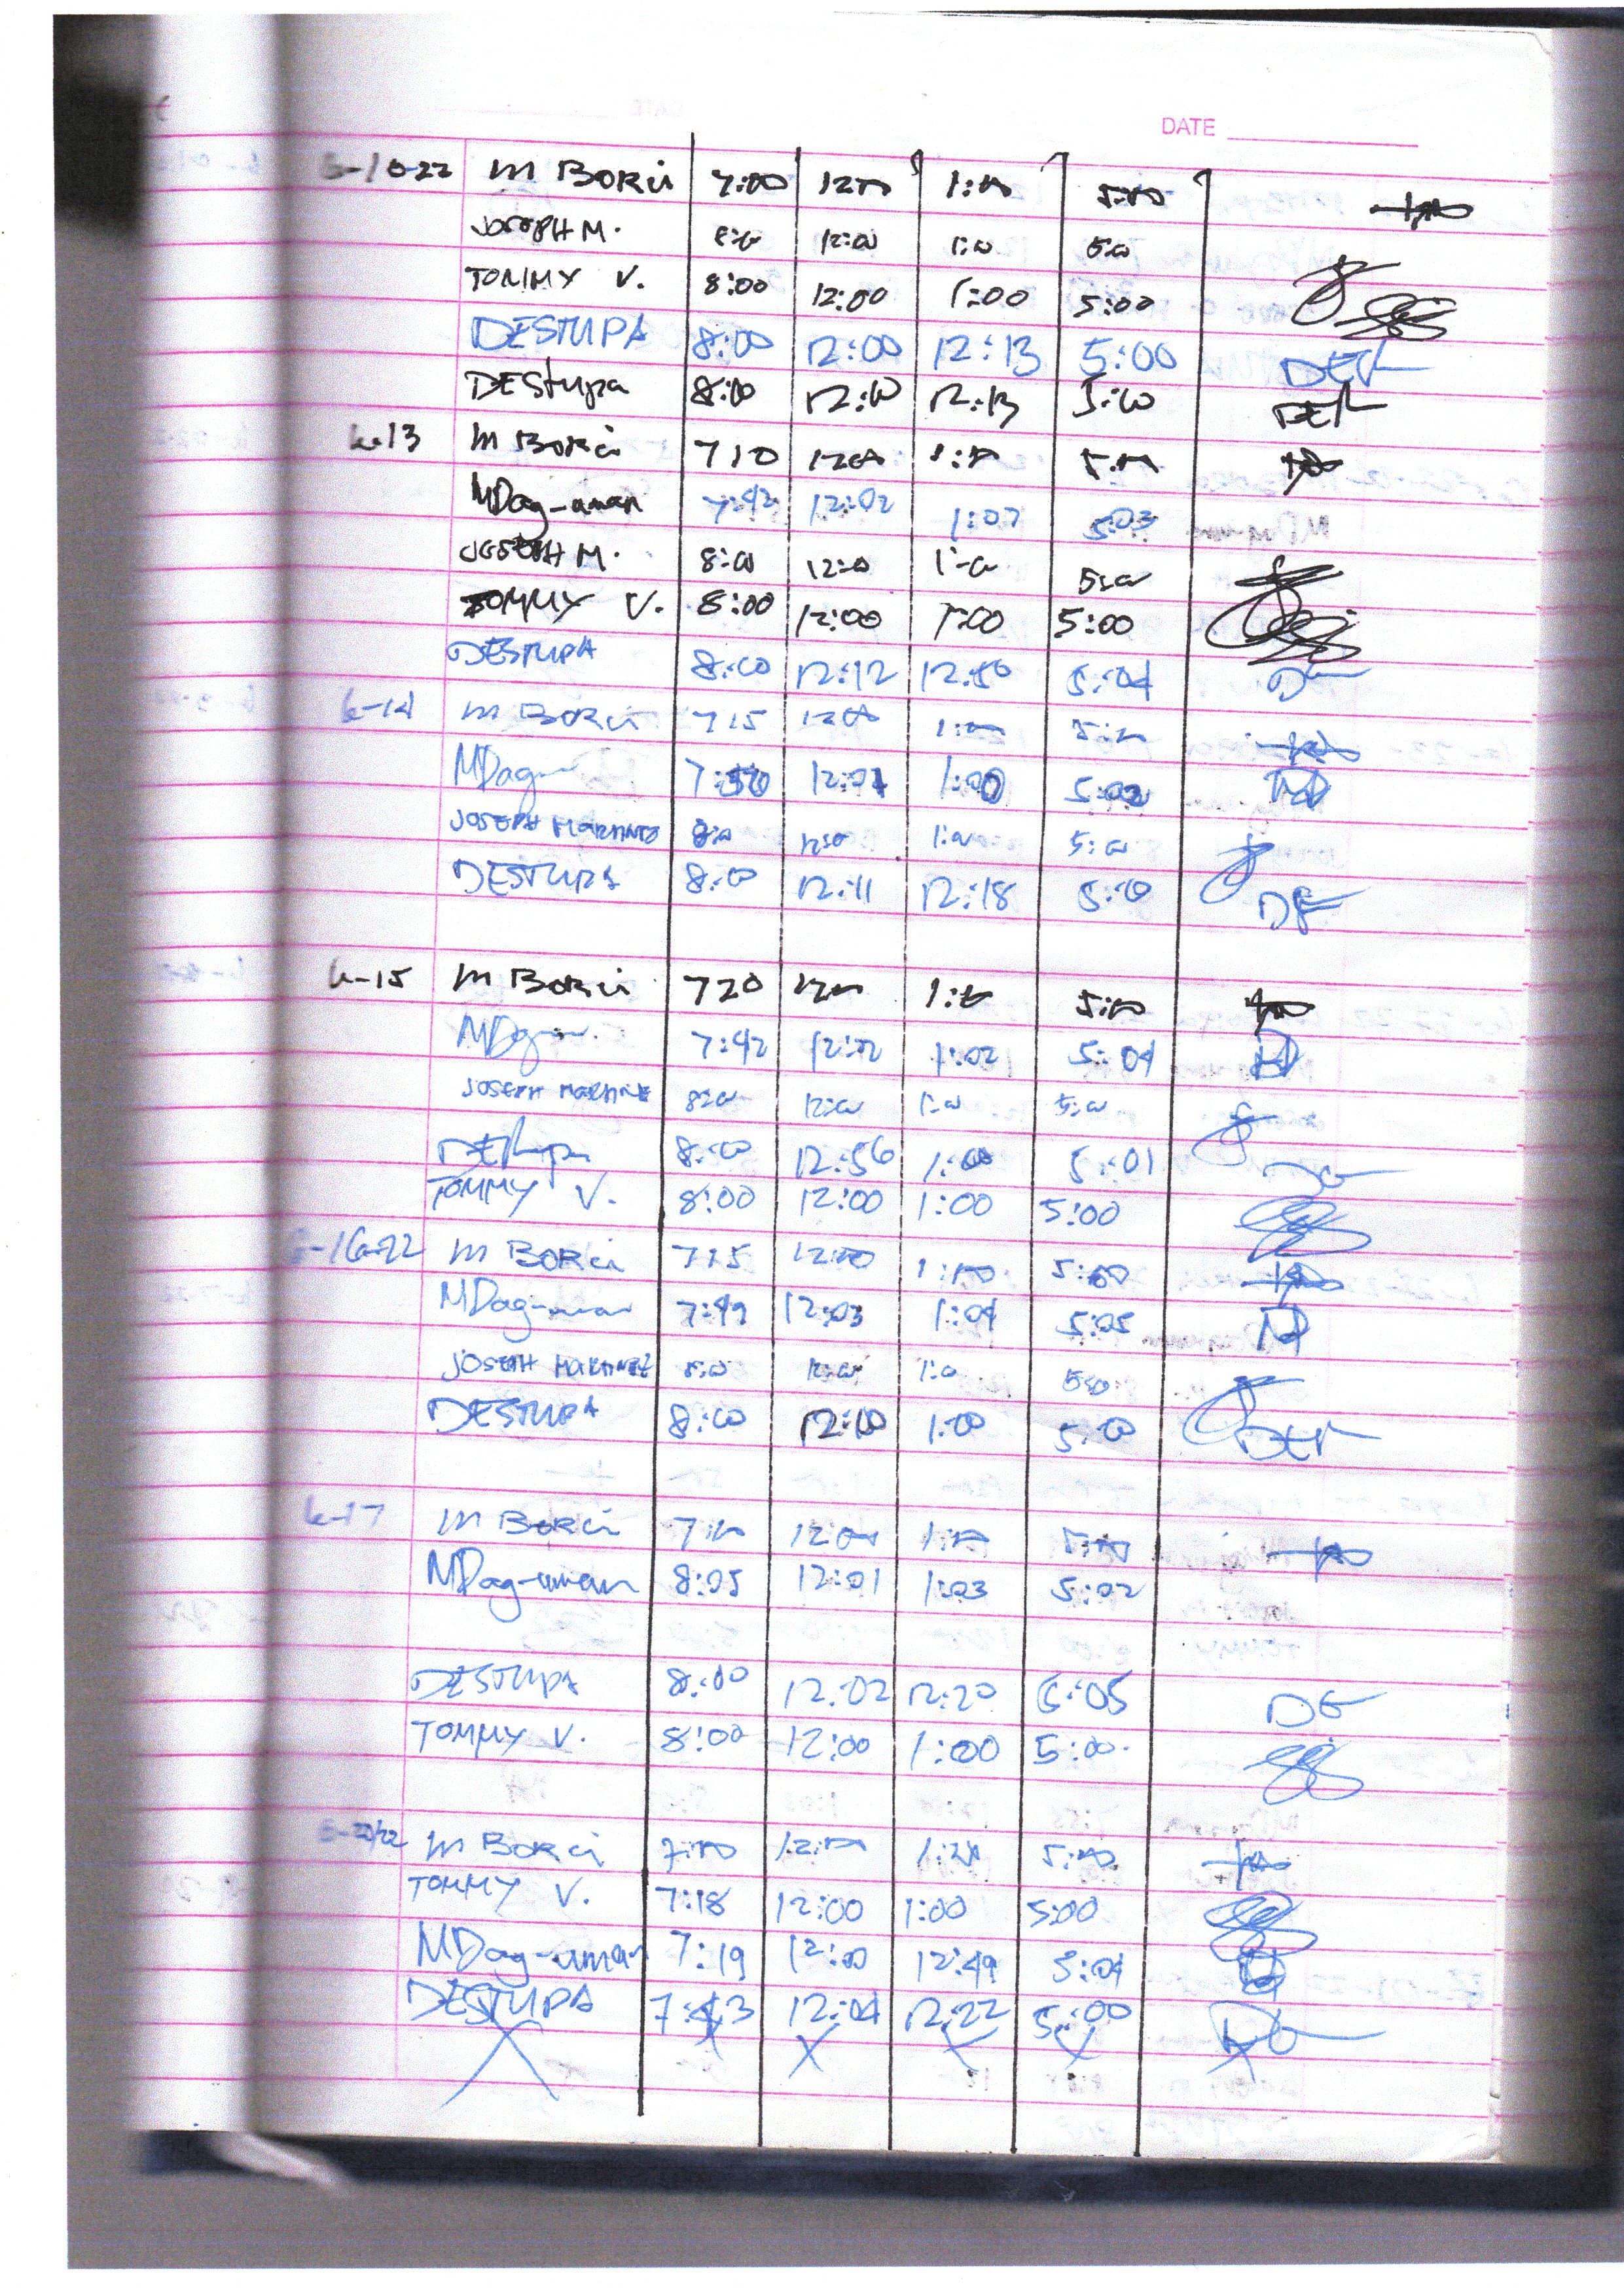 DATE
6-10-22 M Borci 7:00 12:00 1:00 5:00
JOSEPH M. 8:00 12:00 1:00 5:00
TOMMY V. 8:00 12:00 1:00 5:00
DESTUPA 8:00 12:00 12:13 5:00 DEP
DEStupa 8:00 12:10 12:13 5:00 DEP
6-13 M Borci 710 1200 1:00 5:00
MDag-uman 7:42 12:02 1:07 5:03
JOSEPH M. 8:00 12:00 1:00 5:00
TOMMY V. 8:00 12:00 1:00 5:00
DESTUPA 8:00 12:12 12:50 5:04
6-14 M Borci 715 1200 1:00 5:00
MDag 7:50 12:01 1:00 5:02
JOSEPH MARTINEZ 8:00 12:00 1:00 5:00
DESTUPA 8:00 12:11 12:18 5:10
6-15 M Borci 720 1200 1:00 5:00
MDag 7:42 12:02 1:02 5:04
JOSEPH MARTINE 8:00 12:00 1:00 5:00
DEStupa 8:00 12:56 1:00 5:01
TOMMY V. 8:00 12:00 1:00 5:00
6-16-22 M Borci 715 12:00 1:00 5:00
MDag-uman 7:49 12:03 1:04 5:05
JOSEPH MARTINEZ 8:00 12:00 1:00 5:00
DESTUPA 8:00 12:10 1:00 5:00
6-17 M Borci 7:00 12:00 1:00 5:00
MDag-uman 8:05 12:01 1:03 5:02
DESTUPA 8:00 12:02 12:20 6:05
TOMMY V. 8:00 12:00 1:00 5:00
M Borci 7:00 12:00 5:00
TOMMY V. 7:18 12:00 1:00 5:00
MDag-uman 7:19 12:00 12:49 5:04
DESTUPA 7:43 12:04 12:22 5:00